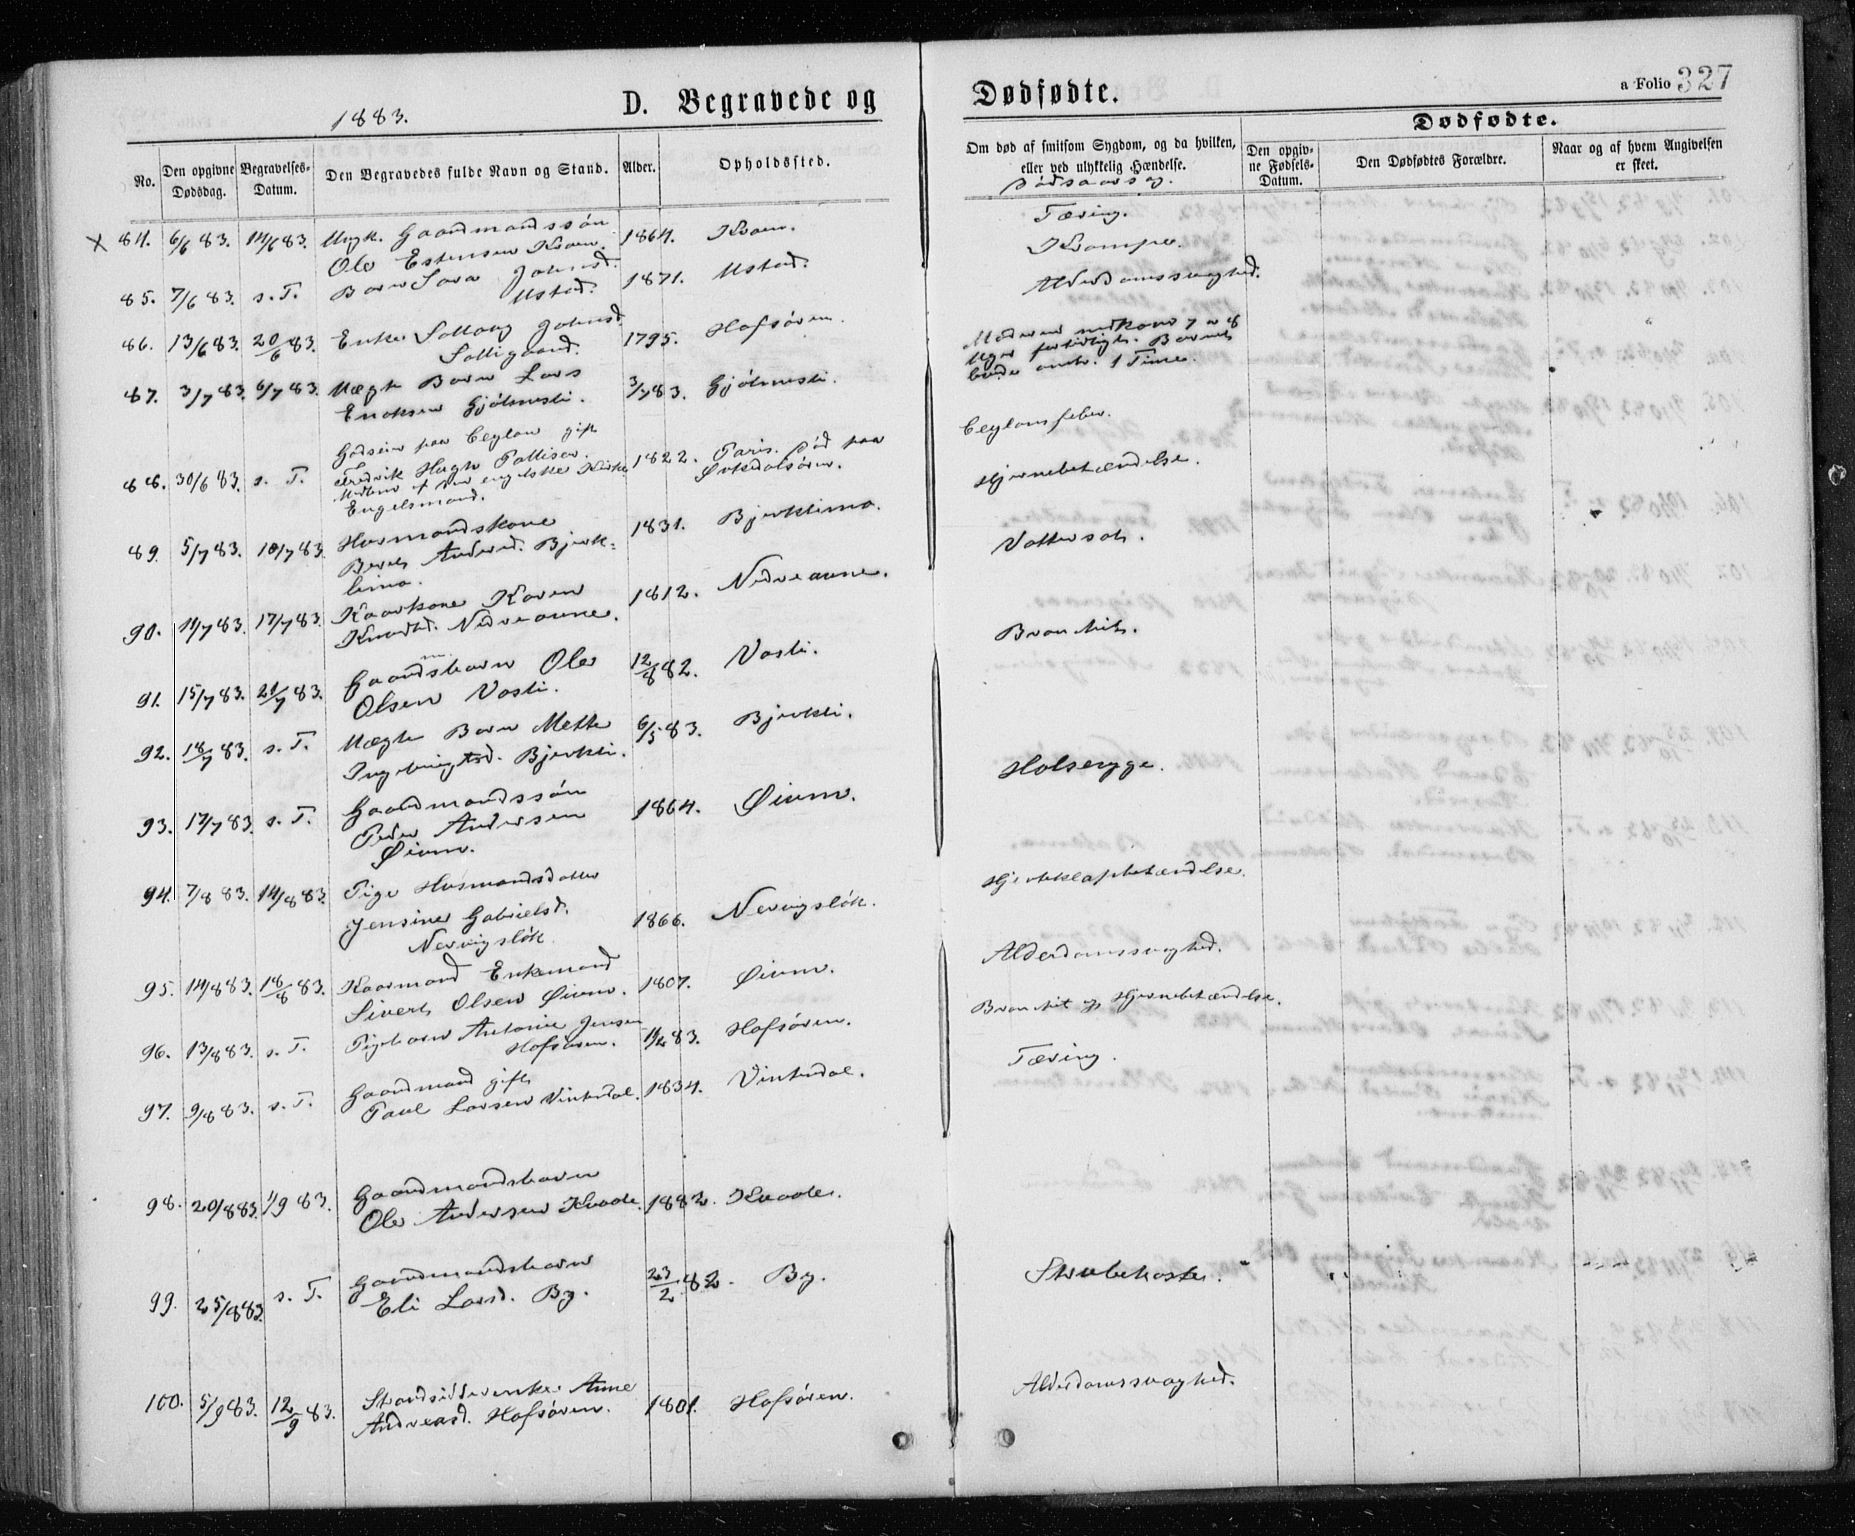 1883.
D. Begravede og
Dødfødte.
a Folio 327
No.
Den opgivne Dødsdag.
Begravelses-Datum.
Den Begravedes fulde Navn og Stand.
Alder.
Opholdssted.
Om død af smitsom Sygdom, og da hvilken,
eller ved ulykkelig Hændelse.
Dødsaarsag.
Dødfødte.
Den opgiv-
ne Fødsels-
Datum.
Den Dødfødtes Forældre.
Naar og af hvem Angivelsen
er skeet.
x 84. 6/6 83. 14/6 83. Ungk. Gaardmandssøn 1864. Kvam. Tæring.
Ole Estensen Kvam.
85. 7/6 83. s. T. Barn Sara Johnsd. 1871. Ustad. Krampe.
Ustad.
86. 13/6 83. 20/6 83. Enke Johnsd. 1795. Hofsøren. Alderdomssvaghed.
87. 3/7 83. 6/7 83. Uægte Barn Lars 3/7 83. Gjølmesli. Moderen nedkom 7 a 8
Ericksen Gjølmesli. Uger fortidligt. Barnet
levede omtr. 1 Time.
88. 30/6 83. s. T. Godseier paa Ceylon gift 1822. Paris. Død paa Ceylonsfeber.
Fredrik Hugh Palliser Ørkedalsøren.
Medlem af den engelske Kirke
Engelsmand.
89. 5/7 83. 10/7 83. Husmandskone 1831. Bjerklimo. Hjernebetændelse.
Beret Andersd. Bjerk=
limo.
90. 11/7 83. 17/7 83. Kaarkone Karen 1812. Nedreaune. Vattersot.
Knudsd. Nedreaune.
91. 15/7 83. 21/7 83. Gaardmsbarn Ole 12/8 82. Vasli. Bronchit.
Olsen Vasli.
92. 18/7 83. s. T. Uægte Barn Mette 6/5 83. Bjerkli.
Ingebrigtsd. Bjerkli.
93. 17/7 83. s. T. Gaardmandssøn 1864. Øium. Halsesyge.
Peder Andersen
Øium.
94. 7/8 83. 14/8 83. Pige Husmandsdatter 1866. Nervigsløk. Hjerteklapbetændelse.
Jensine Gabrielsd.
Nervigsløk.
95. 14/8 83. 18/8 83. Kaarmand Enkemand 1807. Øium. Alderdomssvaghed.
Sivert Olsen Øium.
96. 13/8 83. s. T. Pigebarn Antonie Jensen 11/2 83. Hofsøren. Bronchit og Hjernebetændelse.
Hofsøren.
97. 9/8 83. s. T. Gaardmand gift 1834. Vinterdal. Tæring.
Paul Larsen Vinterdal.
98. 20/8 83. 1/9 83. Gaardmandsbarn 1882. Kvaale.
Ole Andersen Kvaale.
99. 25/8 83. s. T. Gaardmandsbarn 23/2 82. By. Strubehoste.
Eli Larsd. By.
100. 5/9 83. 12/9 83. Strandsidderenke Anne 1801. Hofsøren. Alderdomssvaghed.
Andreasd. Hofsøren.